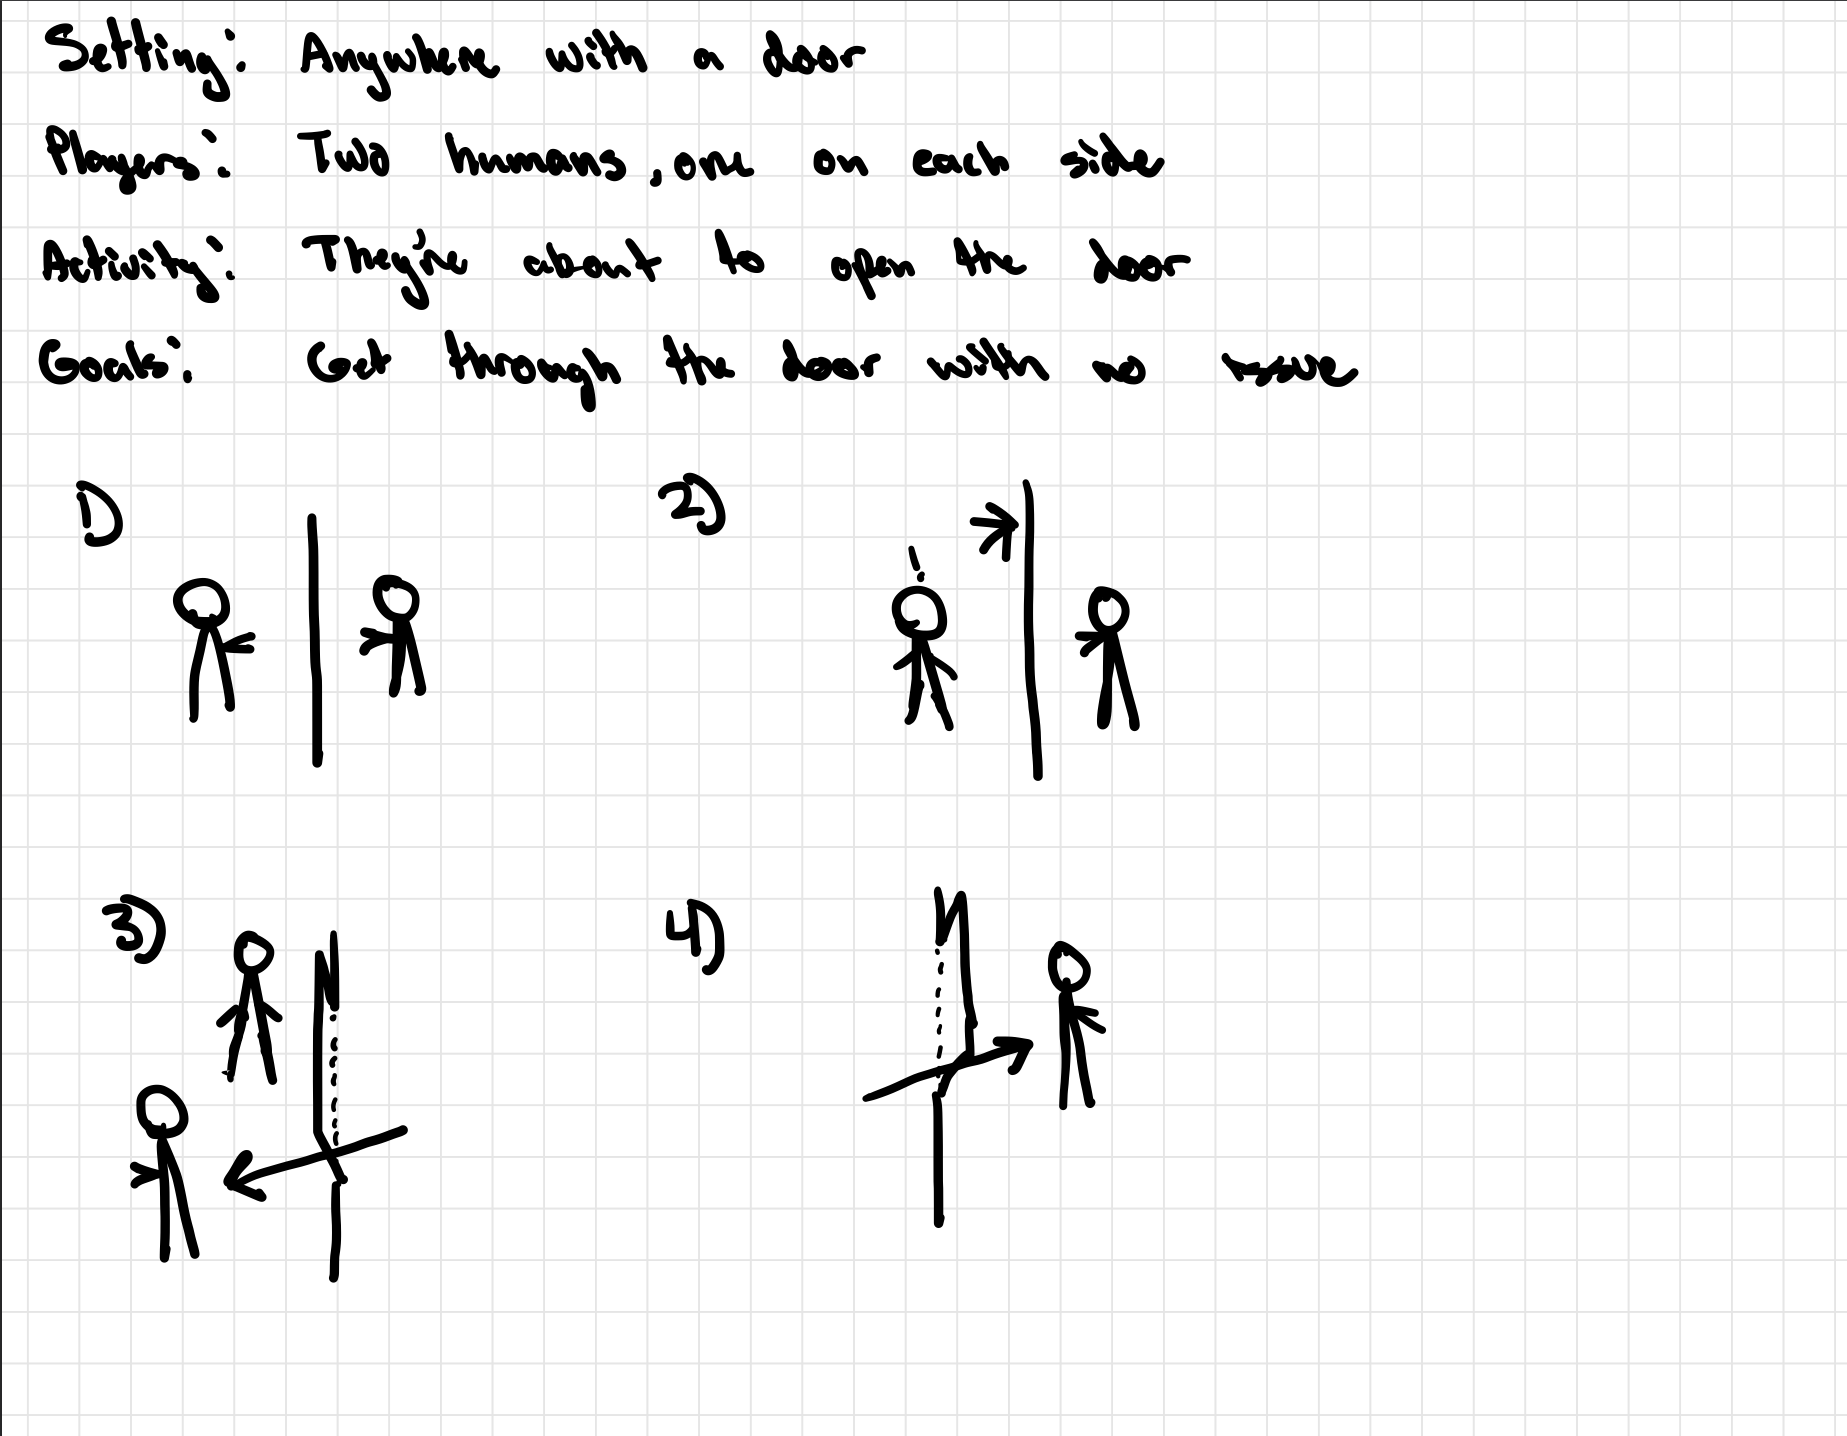 Setting: Anywhere with a door
Players: Two humans, one on each side
Activity: They're about to open the door
Goals: Get through the door with no issue
1)
2)
3)
4)